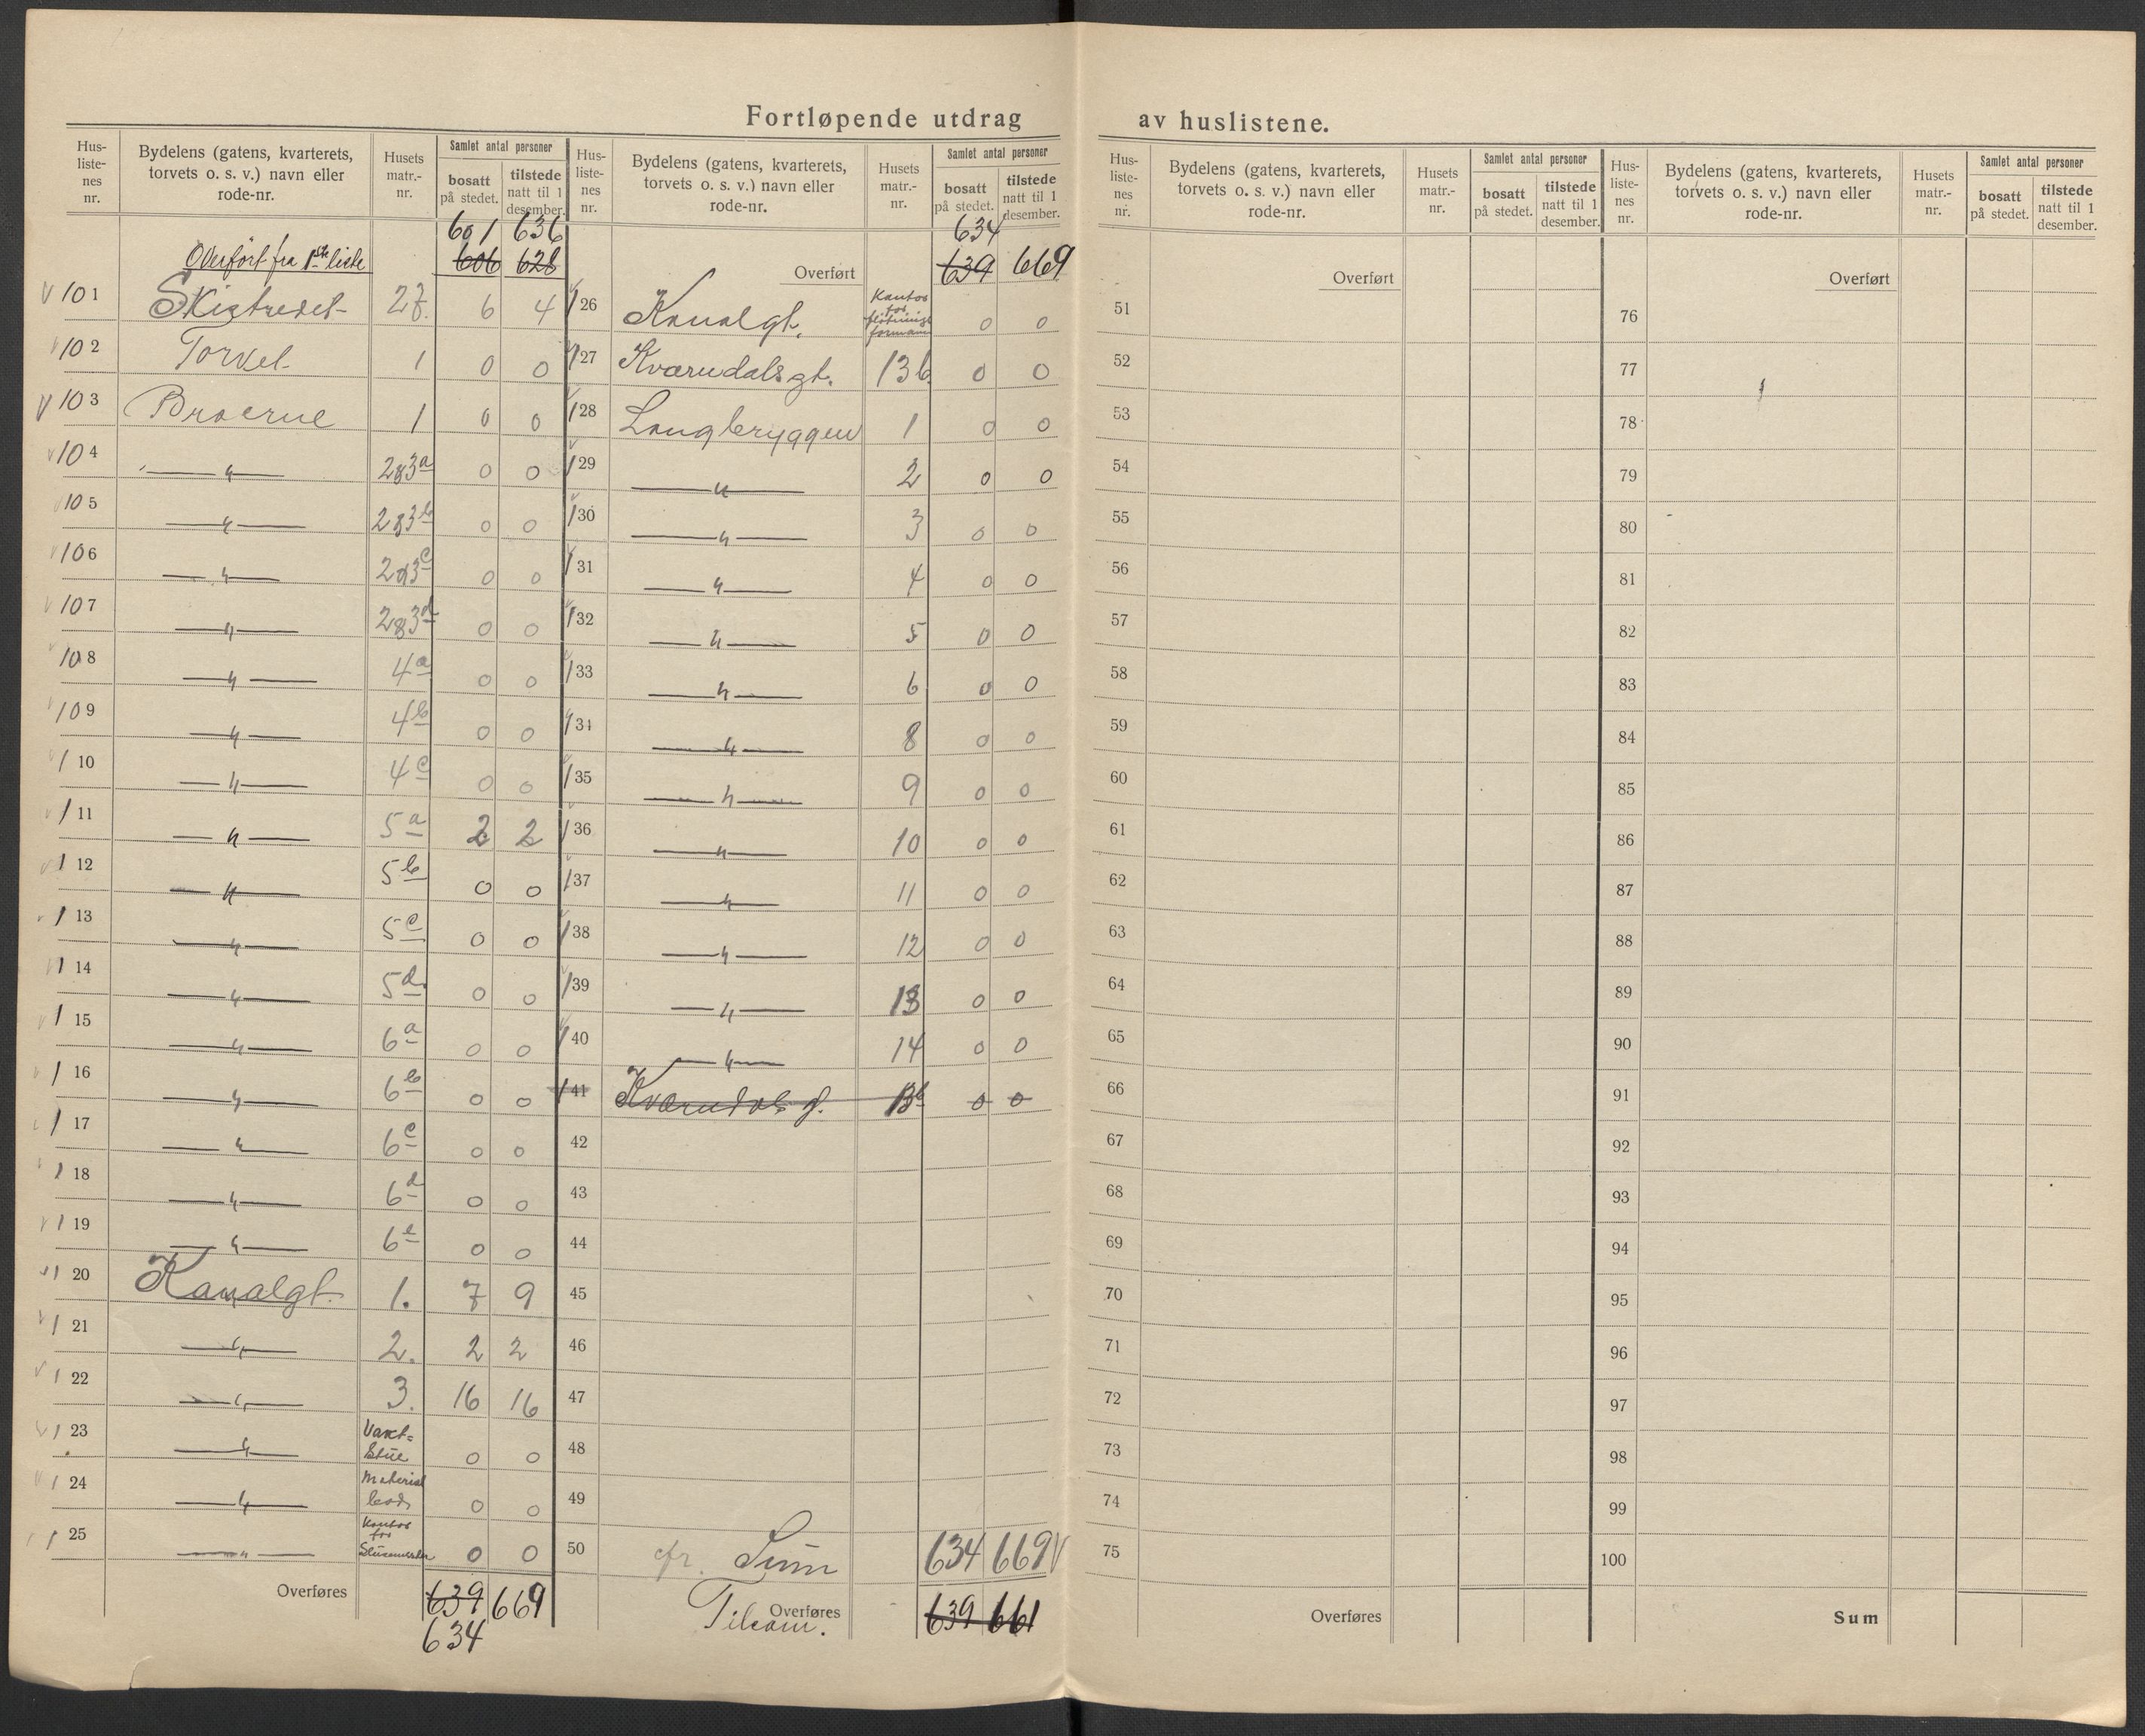 Fortløpende utdrag av huslistene.
Hus-
liste-
nes
nr.
Bydelens (gatens, kvarterets,
torvets o. s. v.) navn eller
rode-nr.
Husets
matr.-
nr.
Samlet antal personer
bosatt
på stedet.
tilstede
natt til 1
desember.
601 636
Overført fra 1ste liste 606 628
101 Skistredet 27. 6 4
102 Torvet 1 0 0
103 Broerne 1 0 0
104 " 2&3a 0 0
105 " 2&3b 0 0
106 " 2&3c 0 0
107 " 2&3d 0 0
108 " 4a 0 0
109 " 4b 0 0
110 " 4c 0 0
111 " 5a 2 2
112 " 5b 0 0
113 " 5c 0 0
114 " 5d 0 0
115 " 6a 0 0
116 " 6b 0 0
117 " 6c 0 0
118 " 6d 0 0
119 " 6e 0 0
120 Kanalgt. 1. 7 9
121 " 2. 2 2
122 " 3. 16 16
123 " Vakt-
stue 0 0
124 " Material
bod 0 0
125 " Kontor
for
Slusemester 0 0
Overføres 639 669
634
Hus-
liste-
nes
nr.
Bydelens (gatens, kvarterets,
torvets o. s. v.) navn eller
rode-nr.
Husets
matr.-
nr.
Samlet antal personer
bosatt
på stedet.
tilstede
natt til 1
desember.
634
Overført 639 669
126 Kanalgt. Kontor
for
fløtnings
formann 0 0
127 Kværndalsgt. 13b 0 0
128 Langbryggen 1 0 0
129 " 2 0 0
130 " 3 0 0
131 " 4 0 0
132 " 5 0 0
133 " 6 0 0
134 " 8 0 0
135 " 9 0 0
136 " 10 0 0
137 " 11 0 0
138 " 12 0 0
139 " 13 0 0
140 " 14 0 0
141 Kværndalsg. 13b 0 0
42
43
44
45
46
47
48
49
50 cfr. Sum 634 669 V
Overføres Tilsam. 639 661
Hus-
liste-
nes
nr.
Bydelens (gatens, kvarterets,
torvets o. s. v.) navn eller
rode-nr.
Husets
matr.-
nr.
Samlet antal personer
bosatt
på stedet.
tilstede
natt til 1
desember.
Overført
51
52
53
54
55
56
57
58
59
60
61
62
63
64
65
66
67
68
69
70
71
72
73
74
75
Overføres
Hus-
liste-
nes
nr.
Bydelens (gatens, kvarterets,
torvets o. s. v.) navn eller
rode-nr.
Husets
matr.-
nr.
Samlet antal personer
bosatt
på stedet.
tilstede
natt til 1
desember.
Overført
76
77
78
79
80
81
82
83
84
85
86
87
88
89
90
91
92
93
94
95
96
97
98
99
100
Sum